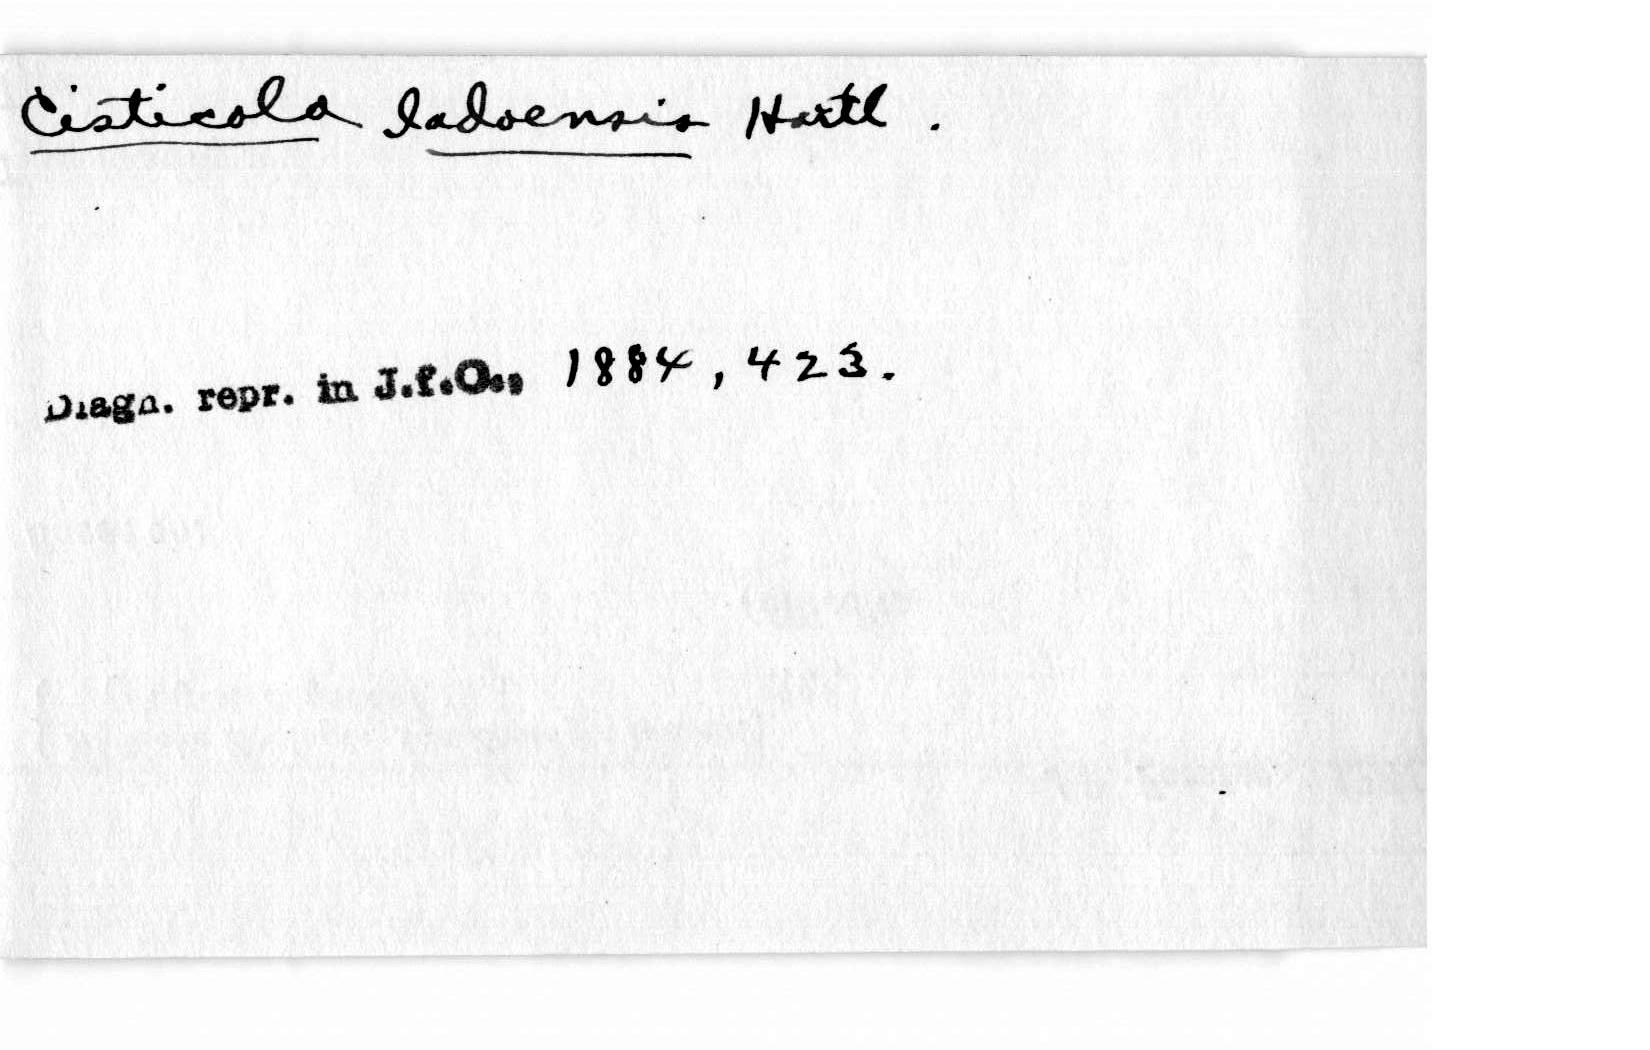 Cisticola ladoensis Hartl.
Diagn. repr. in J.f.O., 1884, 423.